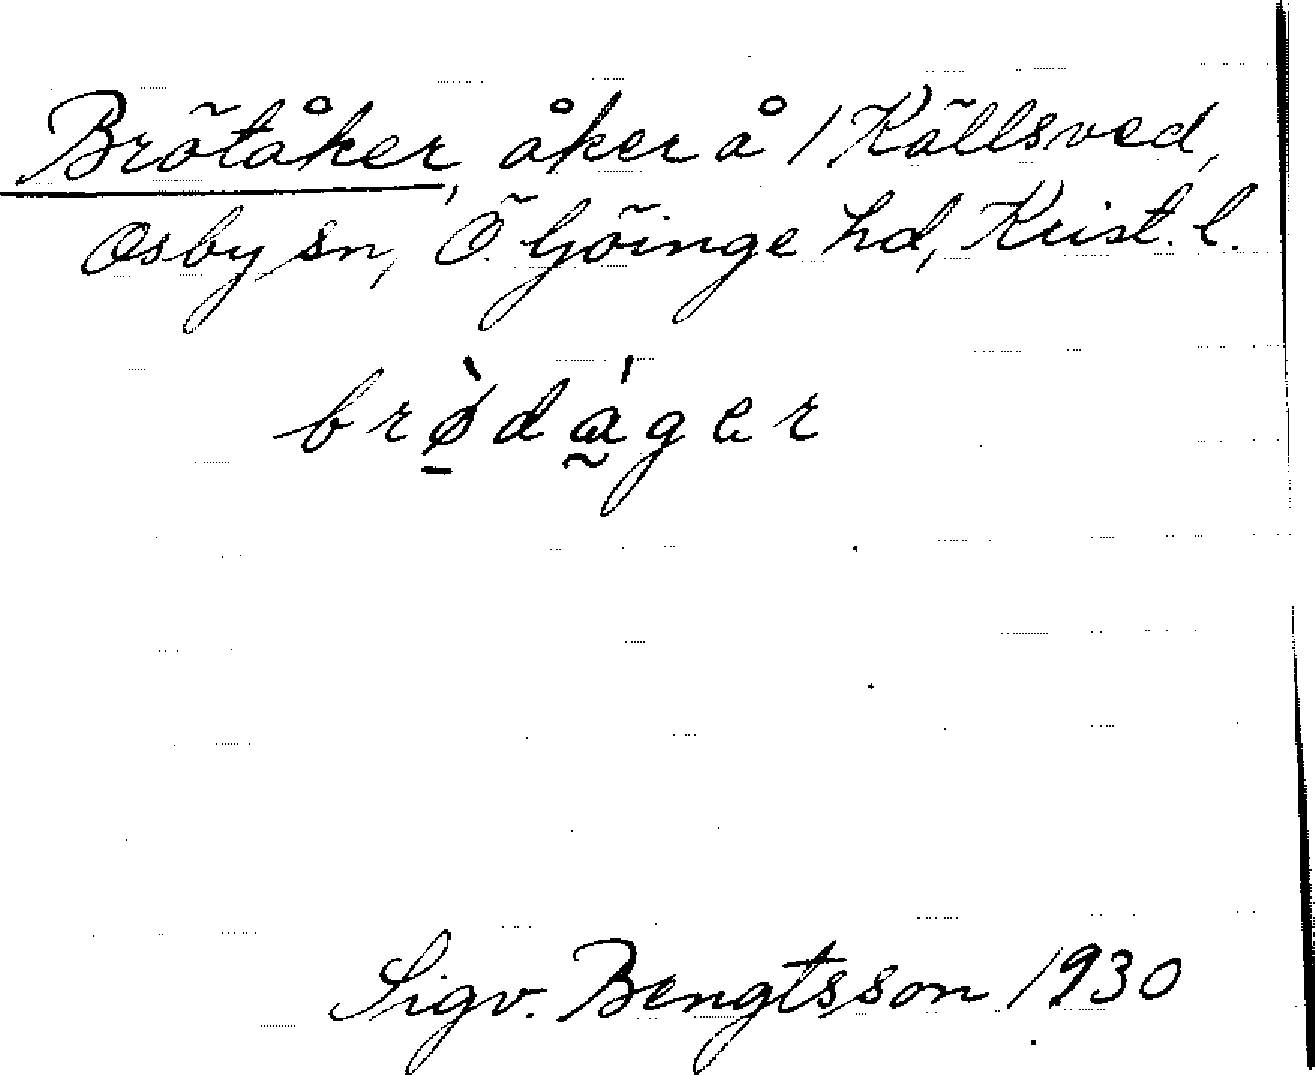 Brötåker, åker å 1 Källsved,
Osby sn, Ö. Göinge hd, Krist. l.
brø̀dáger
Sigv. Bengtsson 1930